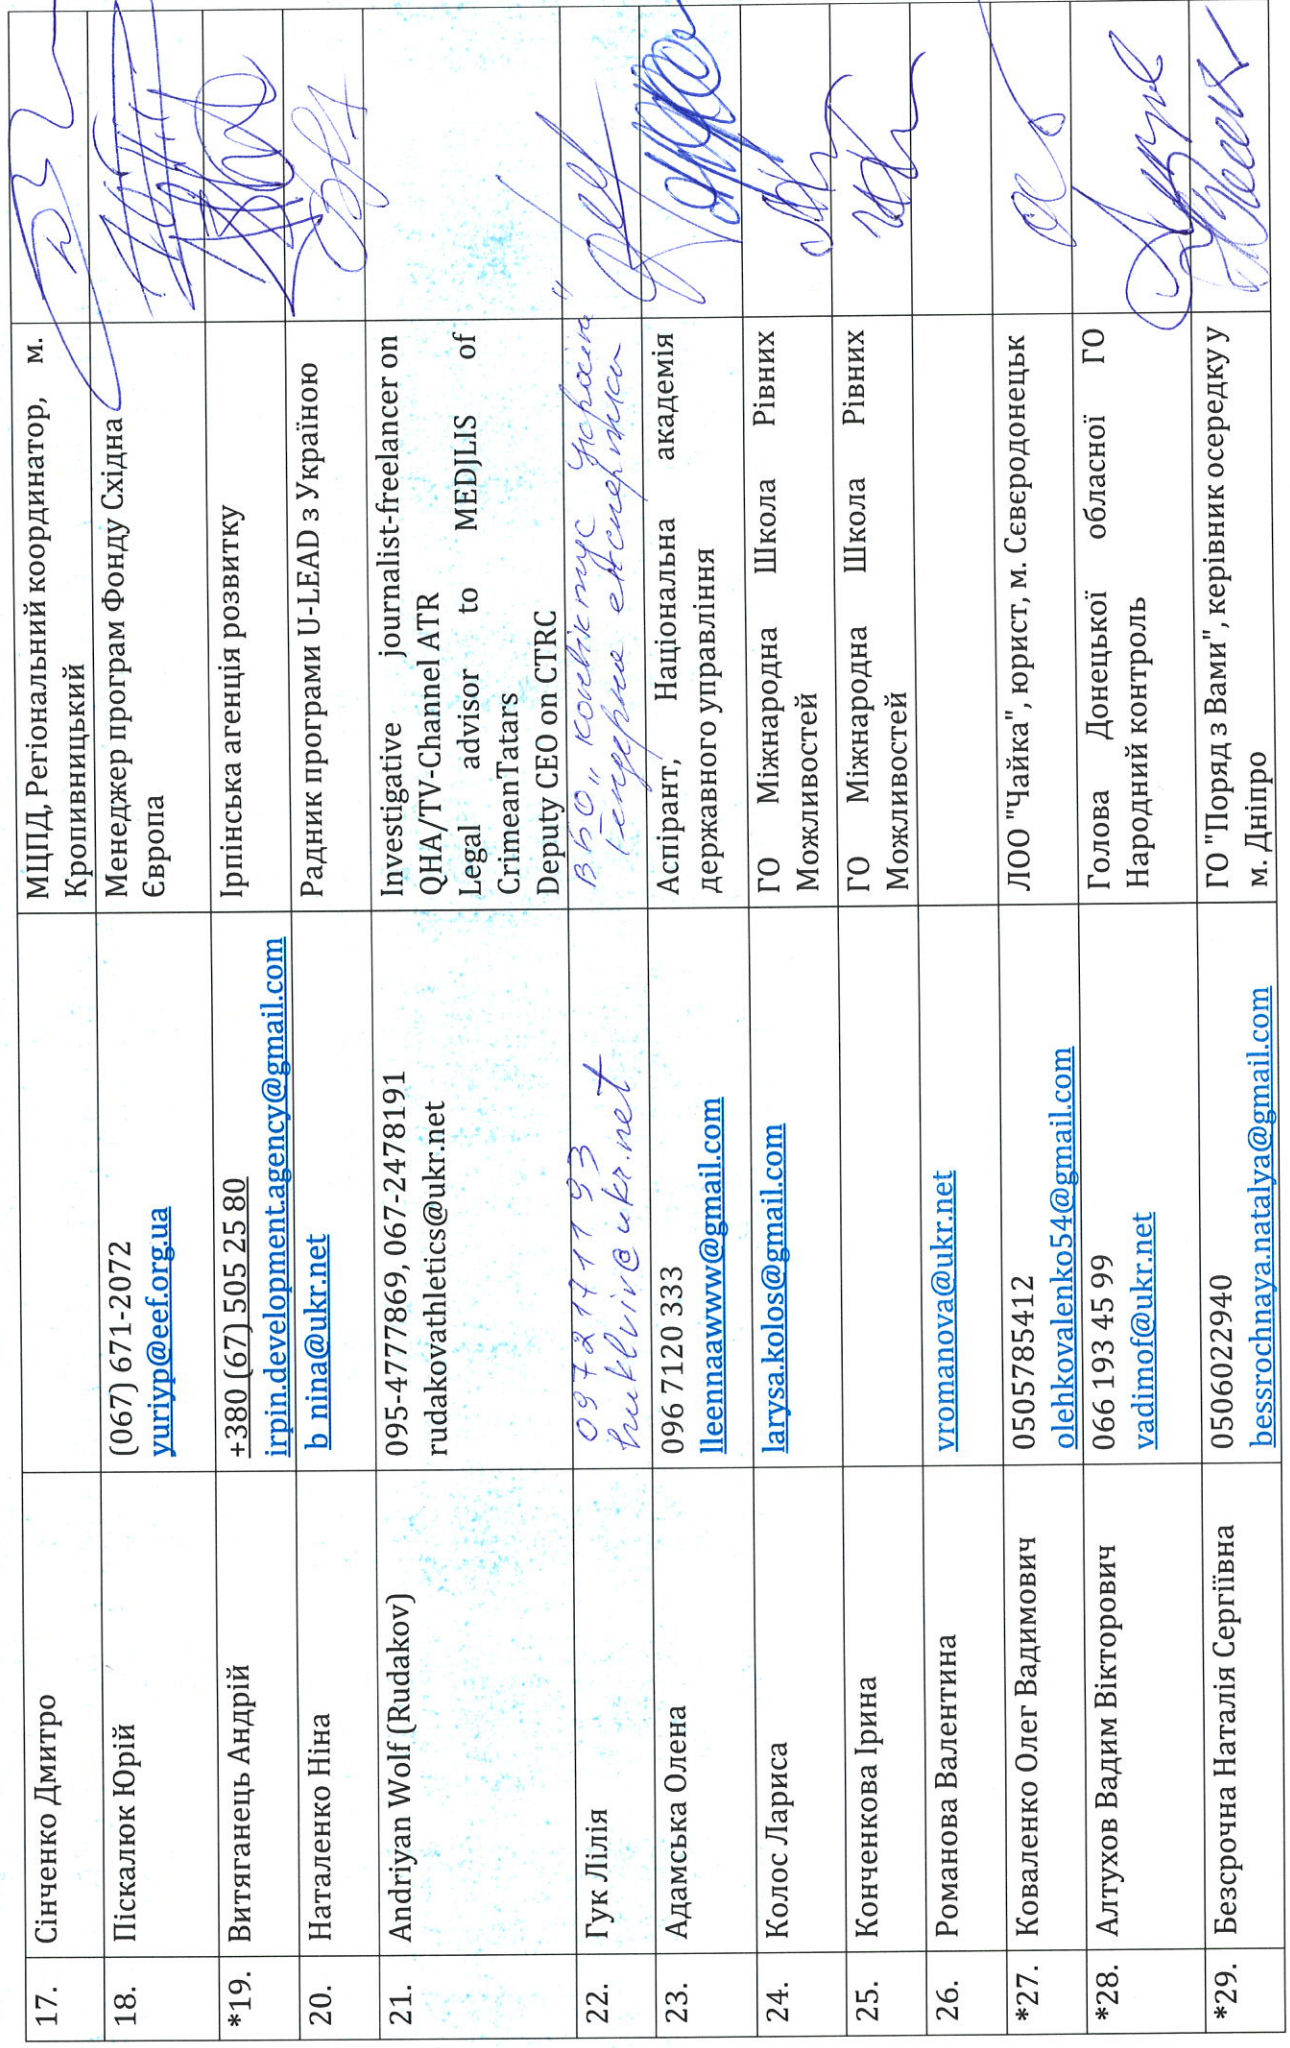 17.
Сінченко Дмитро
МЦПД, Регіональний координатор, м.
Кропивницький
18.
Піскалюк Юрій
(067) 671-2072
yuriyp@eef.org.ua
Менеджер програм Фонду Східна
Європа
*19.
Витяганець Андрій
+380 (67) 505 25 80
irpin.development.agency@gmail.com
Ірпінська агенція розвитку
20.
Наталенко Ніна
b_nina@ukr.net
Радник програми U-LEAD з Україною
21.
Andriyan Wolf (Rudakov)
095-4777869, 067-2478191
rudakovathletics@ukr.net
Investigative journalist-freelancer on
QHA/TV-Channel ATR
Legal advisor to MEDJLIS of
CrimeanTatars
Deputy CEO on CTRC
22.
Гук Лілія
0972171193
huklviv@ukr.net
ВБО "Конвіктус Україна"
Гендерна експертка
23.
Адамська Олена
096 7120 333
lleennaawww@gmail.com
Аспірант, Національна академія
державного управління
24.
Колос Лариса
larysa.kolos@gmail.com
ГО Міжнародна Школа Рівних
Можливостей
25.
Конченкова Ірина
ГО Міжнародна Школа Рівних
Можливостей
26.
Романова Валентина
vromanova@ukr.net
*27.
Коваленко Олег Вадимович
0505785412
olehkovalenko54@gmail.com
ЛОО "Чайка", юрист, м. Сєвєродонецьк
*28.
Алтухов Вадим Вікторович
066 193 45 99
vadimof@ukr.net
Голова Донецької обласної ГО
Народний контроль
*29.
Безсрочна Наталія Сергіївна
0506022940
bessrochnaya.natalya@gmail.com
ГО "Поряд з Вами", керівник осередку у
м. Дніпро